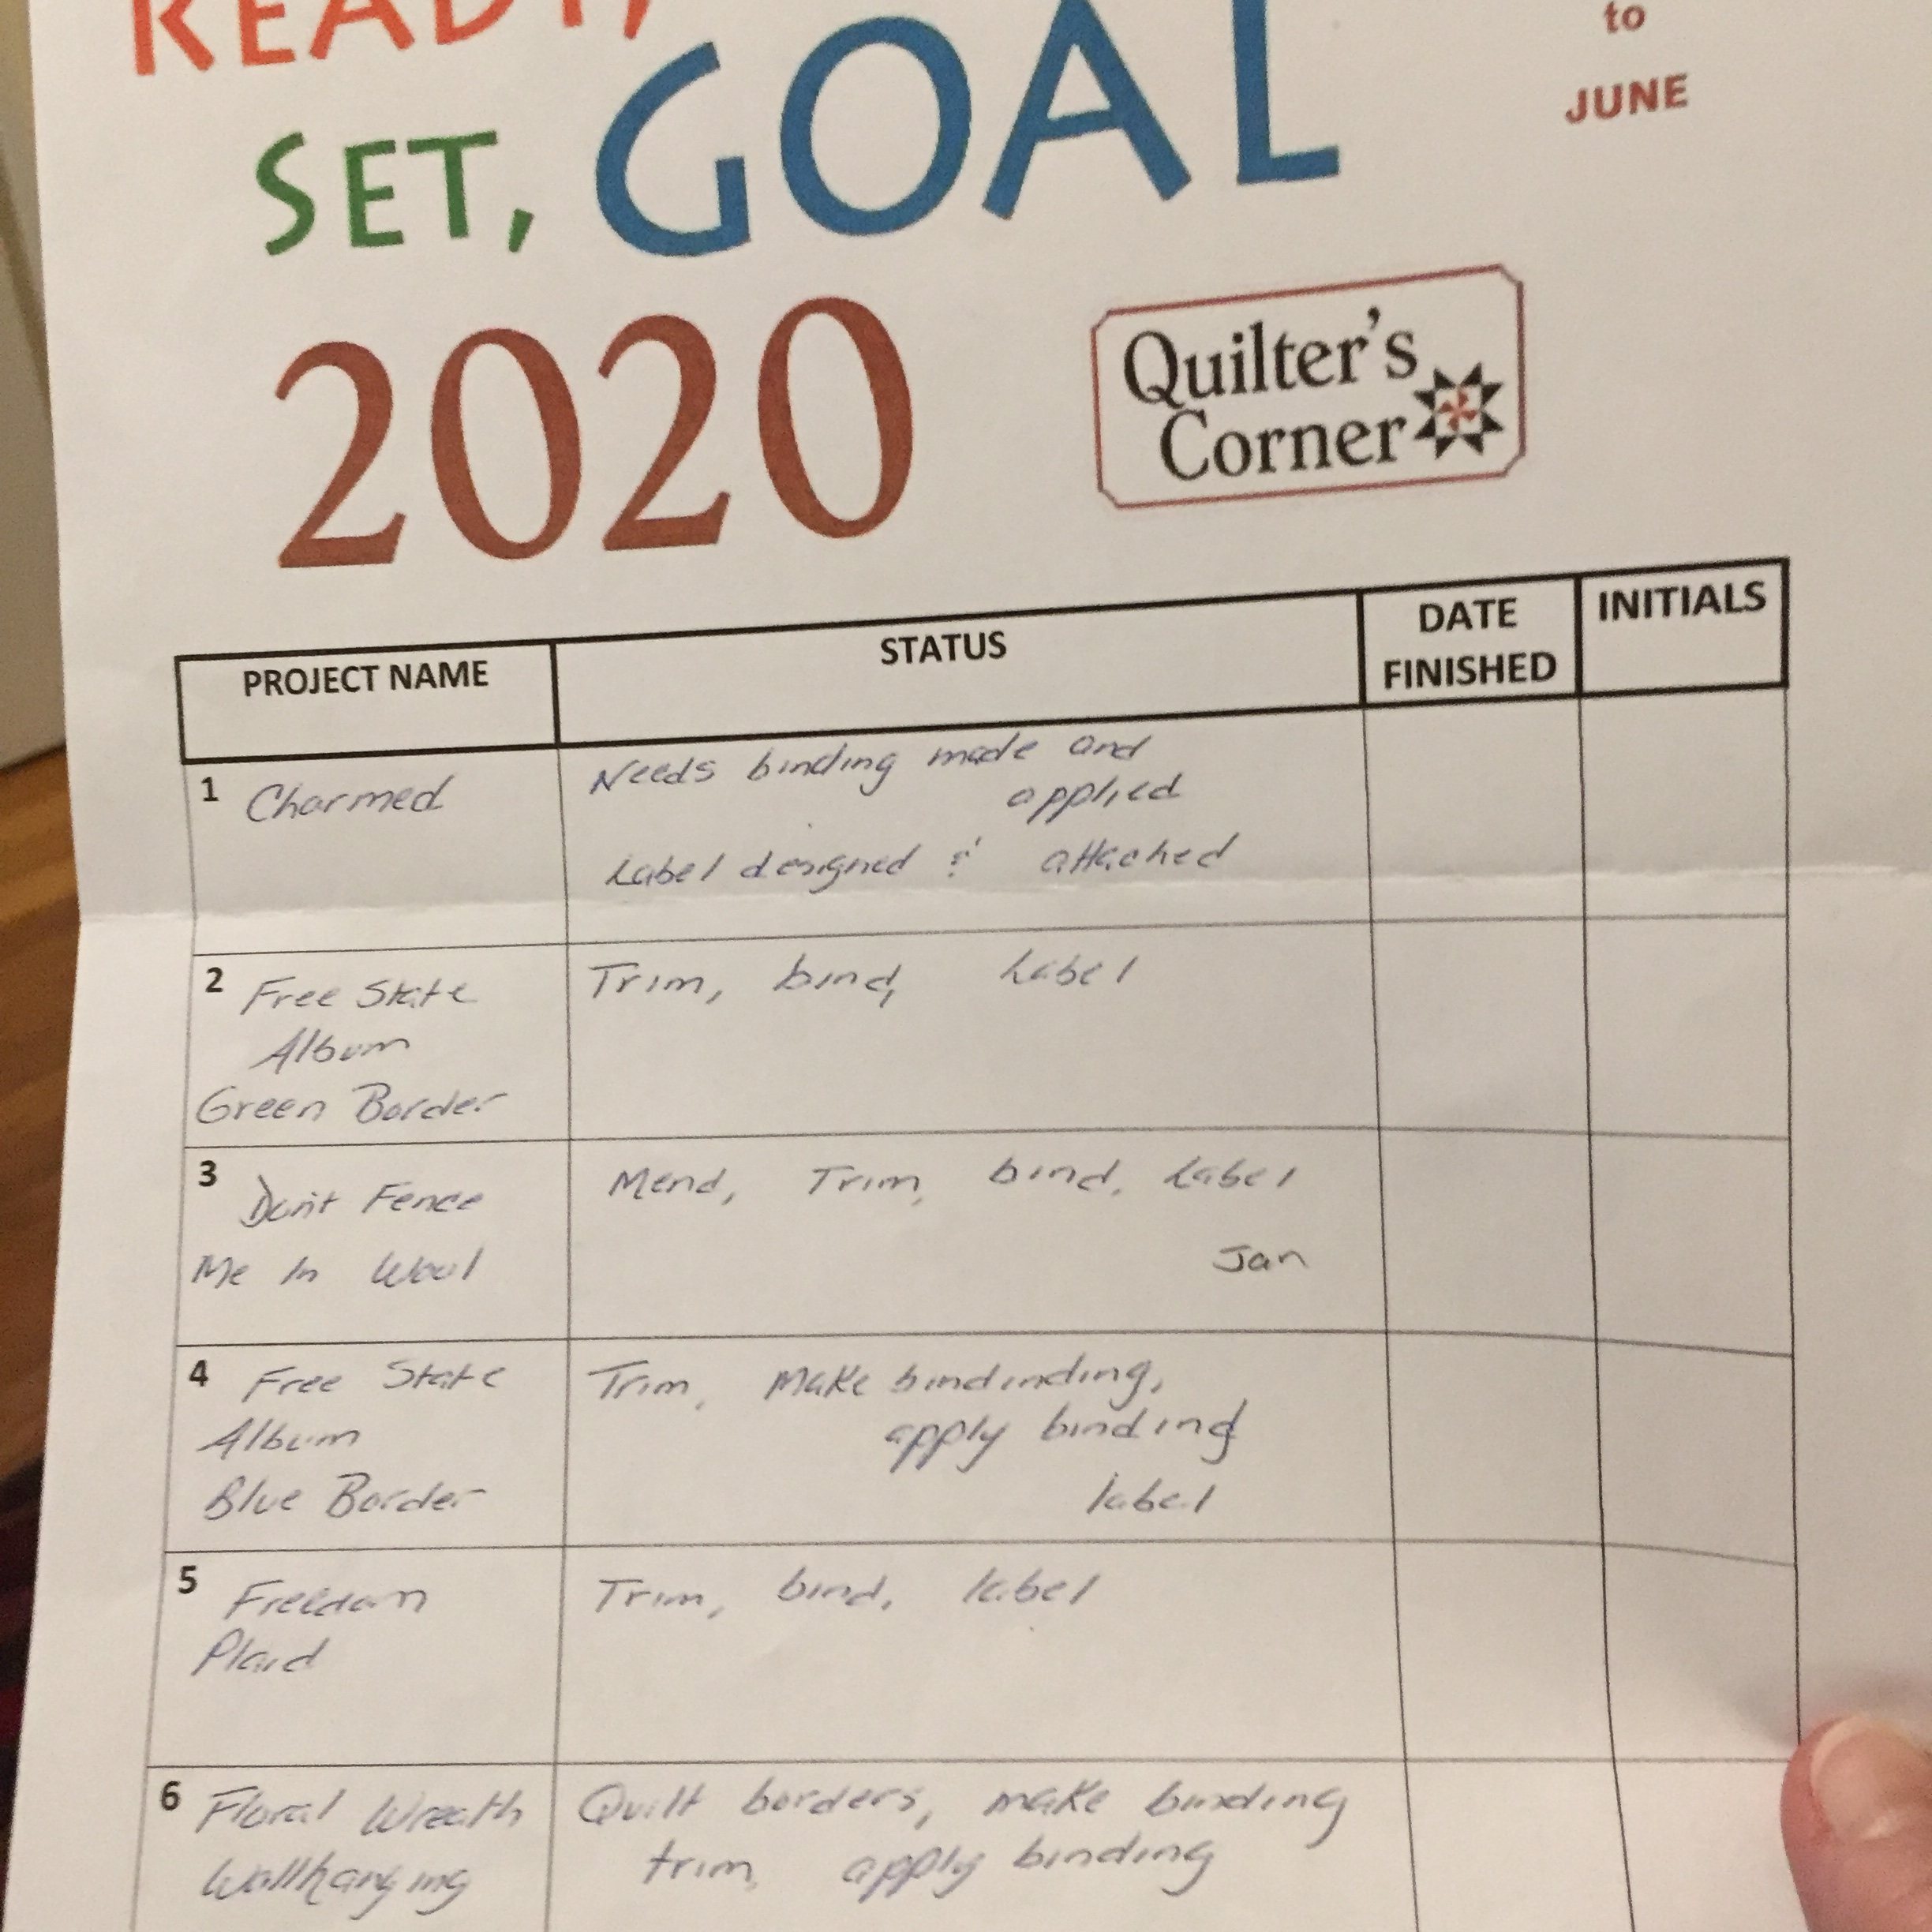 READY,
SET, GOAL
to
JUNE
2020
Quilter's
Corner
PROJECT NAME
STATUS
DATE
FINISHED
INITIALS
1 Charmed
Needs binding made and
applied
Label designed & attached
2 Free State
Album
Green Border
Trim, bind, Label
3 Don't Fence
Me In Wool
Mend, Trim, bind, Label
Jan
4 Free State
Album
Blue Border
Trim, make bindinding,
apply binding
label
5 Freedom
Plaid
Trim, bind, label
6 Floral Wreath
Wallhanging
Quilt borders, make binding
trim, apply binding